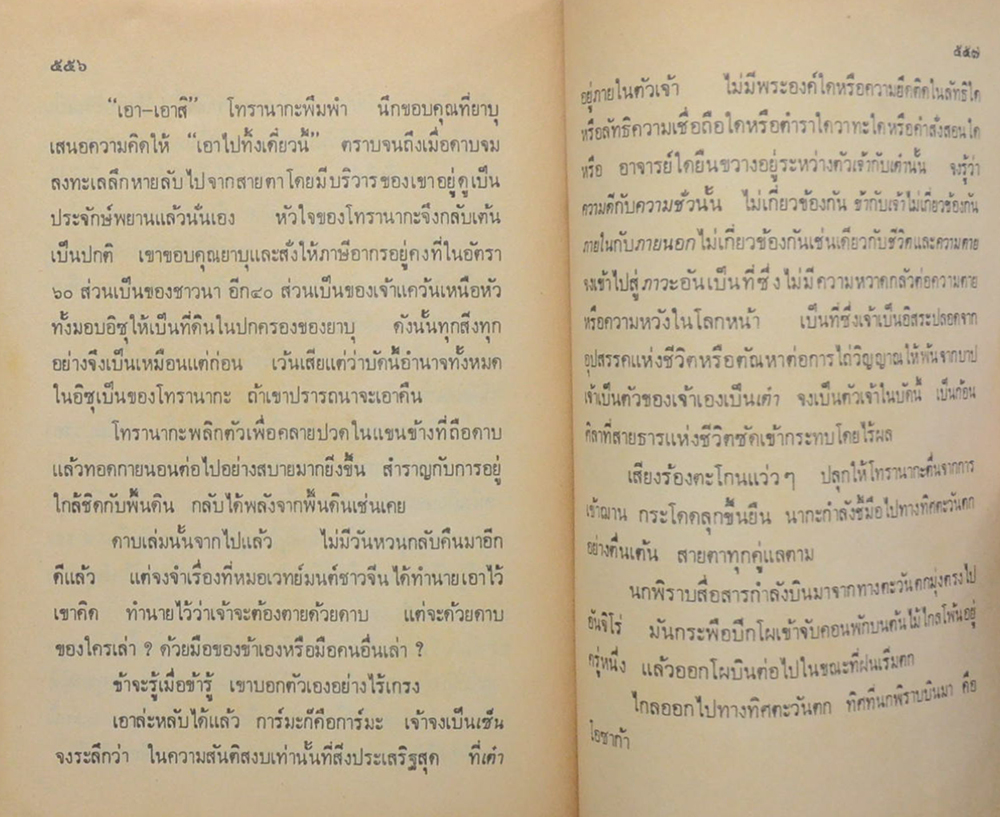 ๕๕๖
“เอา–เอาสิ” โทรานากะพึมพำ นึกขอบคุณที่ยาบุ
เสนอความคิดให้ “เอาไปทิ้งเดี๋ยวนี้” ตราบจนถึงเมื่อดาบจม
ลงทะเลลึกหายลับไปจากสายตาโดยมีบริวารของเขาอยู่ดูเป็น
ประจักษ์พยานแล้วนั่นเอง หัวใจของโทรานากะจึงกลับเต้น
เป็นปกติ เขาขอบคุณยาบุและสั่งให้ภาษีอากรอยู่คงที่ในอัตรา
๖๐ ส่วนเป็นของชาวนา อีก๔๐ ส่วนเป็นของเจ้าแคว้นเหนือหัว
ทั้งมอบอิซุให้เป็นที่ดินในปกครองของยาบุ ดังนั้นทุกสิ่งทุก
อย่างจึงเป็นเหมือนแต่ก่อน เว้นเสียแต่ว่าบัดนี้อำนาจทั้งหมด
ในอิซุเป็นของโทรานากะ ถ้าเขาปรารถนาจะเอาคืน
โทรานากะพลิกตัวเพื่อคลายปวดในแขนข้างที่ถือดาบ
แล้วทอดกายนอนต่อไปอย่างสบายมากยิ่งขึ้น สำราญกับการอยู่
ใกล้ชิดกับพื้นดิน กลับได้พลังจากพื้นดินเช่นเคย
ดาบเล่มนั้นจากไปแล้ว ไม่มีวันหวนกลับคืนมาอีก
ดีแล้ว แต่จงจำเรื่องที่หมอเวทย์มนต์ชาวจีนได้ทำนายเอาไว้
เขาคิด ทำนายไว้ว่าเจ้าจะต้องตายด้วยดาบ แต่จะด้วยดาบ
ของใครเล่า ? ด้วยมือของข้าเองหรือมือคนอื่นเล่า ?
ข้าจะรู้เมื่อข้ารู้ เขาบอกตัวเองอย่างไร้เกรง
เอาล่ะหลับได้แล้ว การ์มะก็คือการ์มะ เจ้าจงเป็นเซ็น
จงระลึกว่า ในความสันติสงบเท่านั้นที่สิ่งประเสริฐสุด ที่เต๋า
๕๕๗
อยู่ภายในตัวเจ้า ไม่มีพระองค์ใดหรือความยึดติดในลัทธิใด
หรือลัทธิความเชื่อถือใดหรือตำราใดวาทะใดหรือคำสั่งสอนใด
หรือ อาจารย์ใดยืนขวางอยู่ระหว่างตัวเจ้ากับเต๋านั้น จงรู้ว่า
ความดีกับความชั่วนั้น ไม่เกี่ยวข้องกัน ข้ากับเจ้าไม่เกี่ยวข้องกัน
ภายในกับภายนอกไม่เกี่ยวข้องกันเช่นเดียวกับชีวิตและความตาย
จงเข้าไปสู่ภาวะอันเป็นที่ซึ่งไม่มีความหวาดกลัวต่อความตาย
หรือความหวังในโลกหน้า เป็นที่ซึ่งเจ้าเป็นอิสระปลอดจาก
อุปสรรคแห่งชีวิตหรือตัณหาต่อการไถ่วิญญาณให้พ้นจากบาป
เจ้าเป็นตัวของเจ้าเองเป็นเต๋า จงเป็นตัวเจ้าในบัดนี้ เป็นก้อน
ศิลาที่สายธารแห่งชีวิตซัดเข้ากระทบโดยไร้ผล
เสียงร้องตะโกนแว่วๆ ปลุกให้โทรานากะตื่นจากการ
เข้าฌาน กระโดดลุกขึ้นยืน นากะกำลังชี้มือไปทางทิศตะวันตก
อย่างตื่นเต้น สายตาทุกคู่แลตาม
นกพิราบสื่อสารกำลังบินมาจากทางตะวันตกมุ่งตรงไป
อันจิโร่ มันกระพือปีกโผเข้าจับคอนพักบนต้นไม้ไกลโพ้นอยู่
ครู่หนึ่ง แล้วออกโผบินต่อไปในขณะที่ฝนเริ่มตก
ไกลออกไปทางทิศตะวันตก ทิศที่นกพิราบบินมา คือ
โอซาก้า